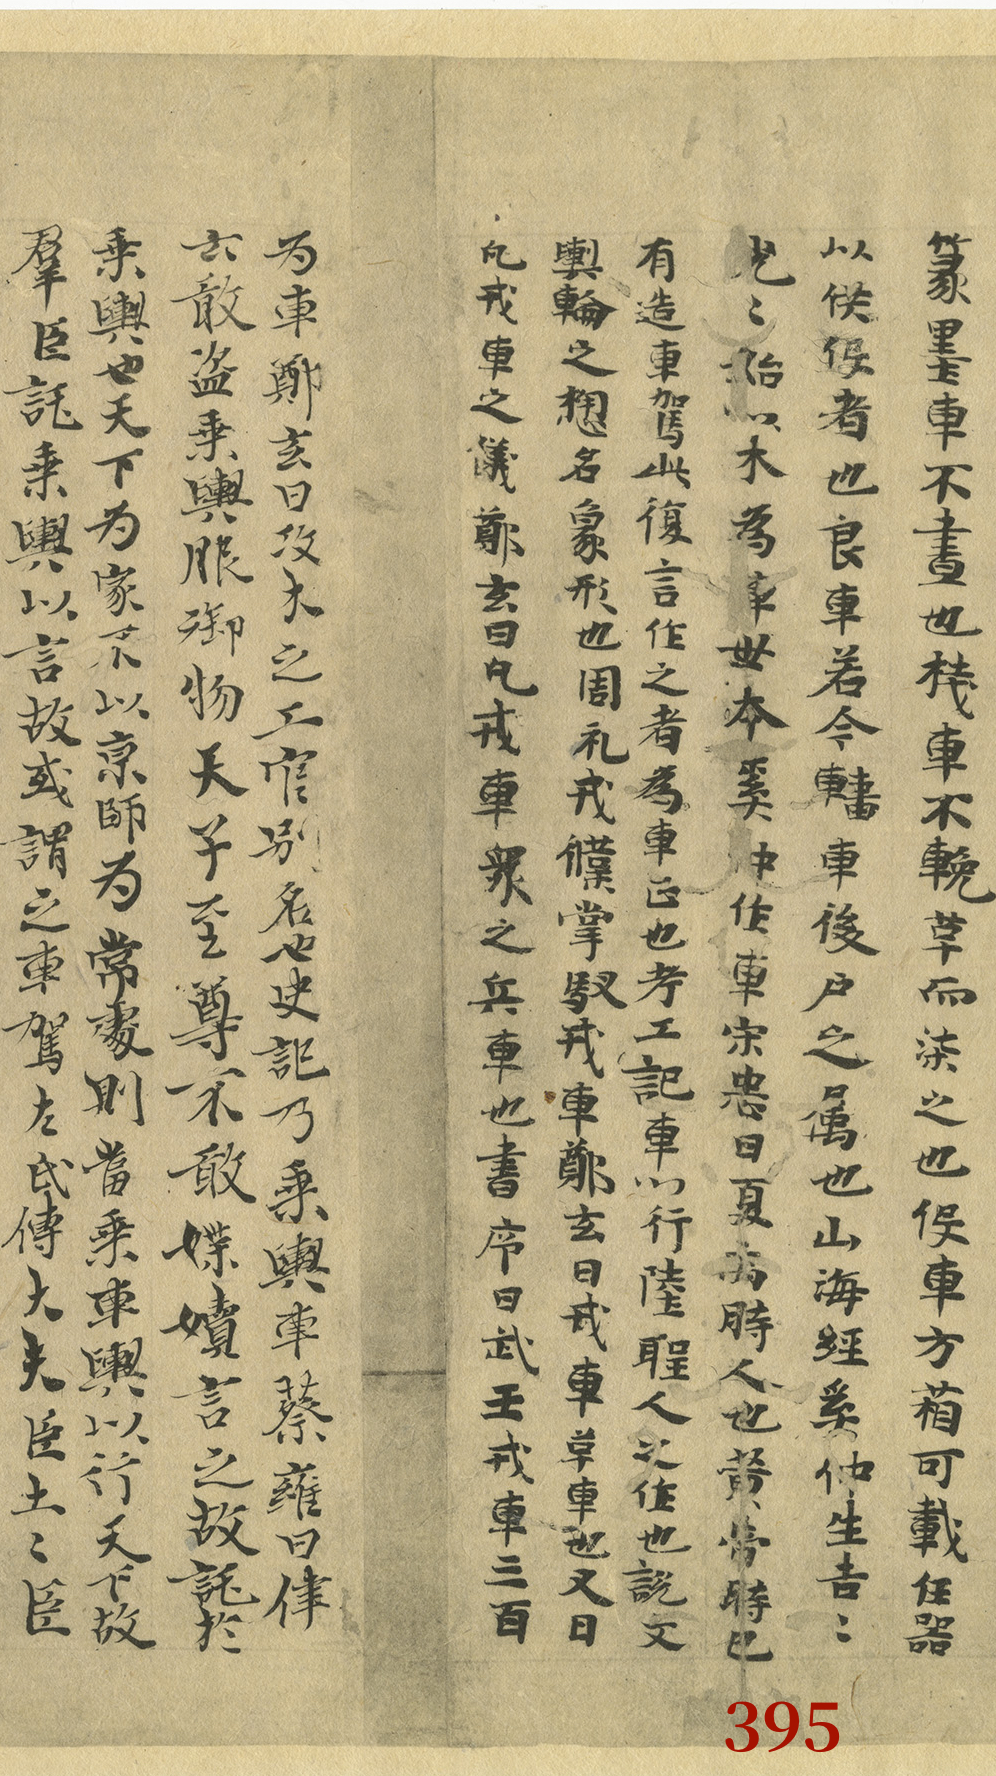 篆墨車不畫也棧車不輓革而漆之也伇車方葙可載任器
以供伇者也良車若今轊車後戶之属也山海經奚仲生吉〻
光〻始以木為車世本奚仲作車宋衷曰夏禹時人也黄帝時已
有造車駕此復言作之者為車正也考工記車以行陸聖人之作也説文
輿輪之揔名象形也周礼戎僕掌馭戎車鄭玄曰戎車革車也又曰
凢戎車之儀鄭玄曰凢戎車衆之兵車也書序曰武王戎車三百
为車鄭玄曰攻木之工官别名也史記乃乗輿車蔡雍曰律
云敢盗乗輿服御物天子至尊不敢媟嬻言之故託於
乗輿也天下为家不以京師为常處則當乗車輿以行天下故
羣臣託乗輿以言故或謂之車駕左氏傳大夫臣士〻臣
395